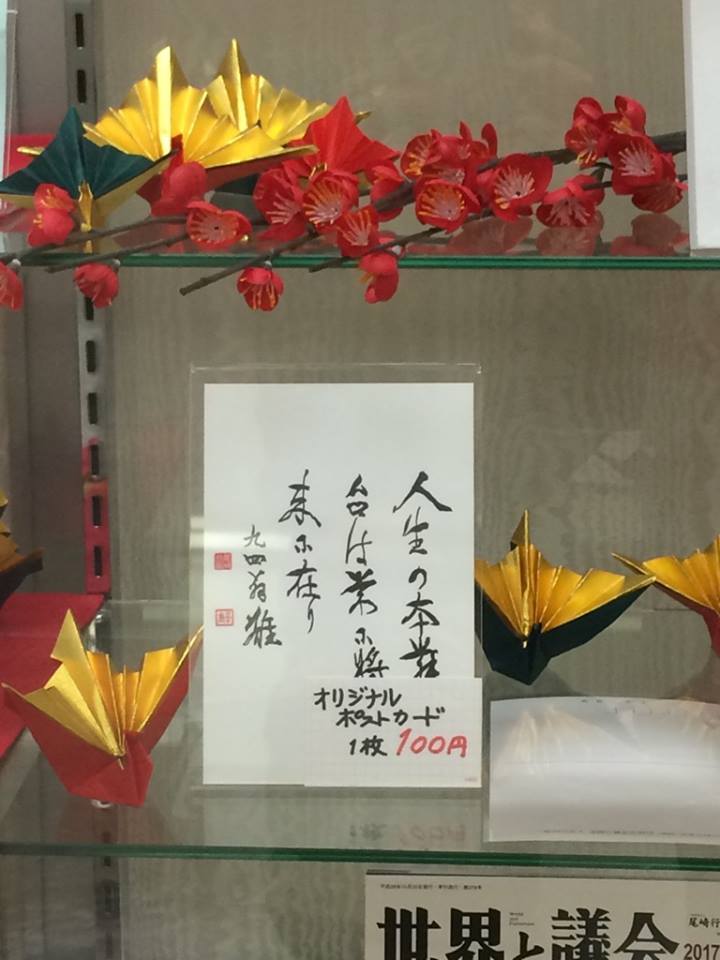 人生の本舞
台は常に将
来に在り
九四翁雄
オリジナル
ポストカード
1枚 100円
世界と議会
尾崎行
2017